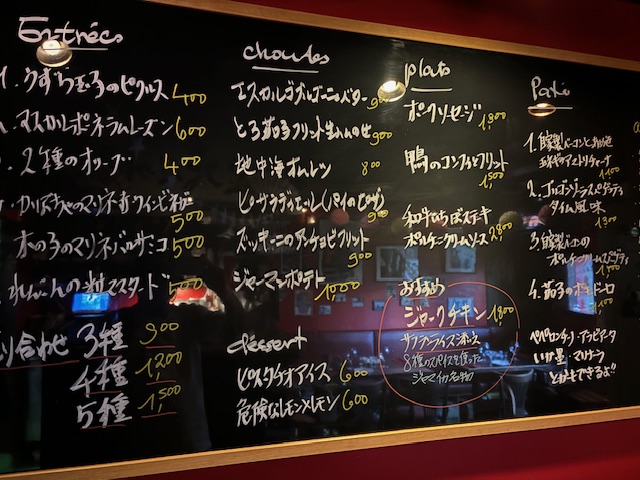 Entrées
1. うずら玉子のピクルス 400
マスカルポーネラムレーズン 600
2種のオリーブ 400
かぼちゃのマリネ 500
木の子のマリネバルサミコ 500
れんこんの粒マスタード 500
り合わせ 3種 900
4種 1200
5種 1,500
chaudes
エスカルゴブルゴーニュバター 900
とろ茄子フリット生ハムのせ 900
地中海オムレツ 800
ピサラディエール(パイのピザ) 900
ズッキーニのアンチョビフリット 900
ジャーマンポテト 1,000
dessert
ピスタチオアイス 600
危険なレモン×レモン 600
plats
ポークソーセージ 1,300
鴨のコンフィとフリット 1,500
和牛ひちぼステキ
ポルチーニクリームソース 2,800
おすすめ
ジャークチキン 1,800
サフランライス添え
8種のスパイスを使った
ジャマイカ名物
1. 自家製ベーコンと
アマトリチャーナ 1100
2. ゴルゴンゾーラスパゲティ
タイム風味 1300
3. 自家製ベーコンの
ポルチーニクリームスパゲティ
4. 茄子の
ペペロンチーノ・アラビアータ
いか墨・
とかもできるよ!!